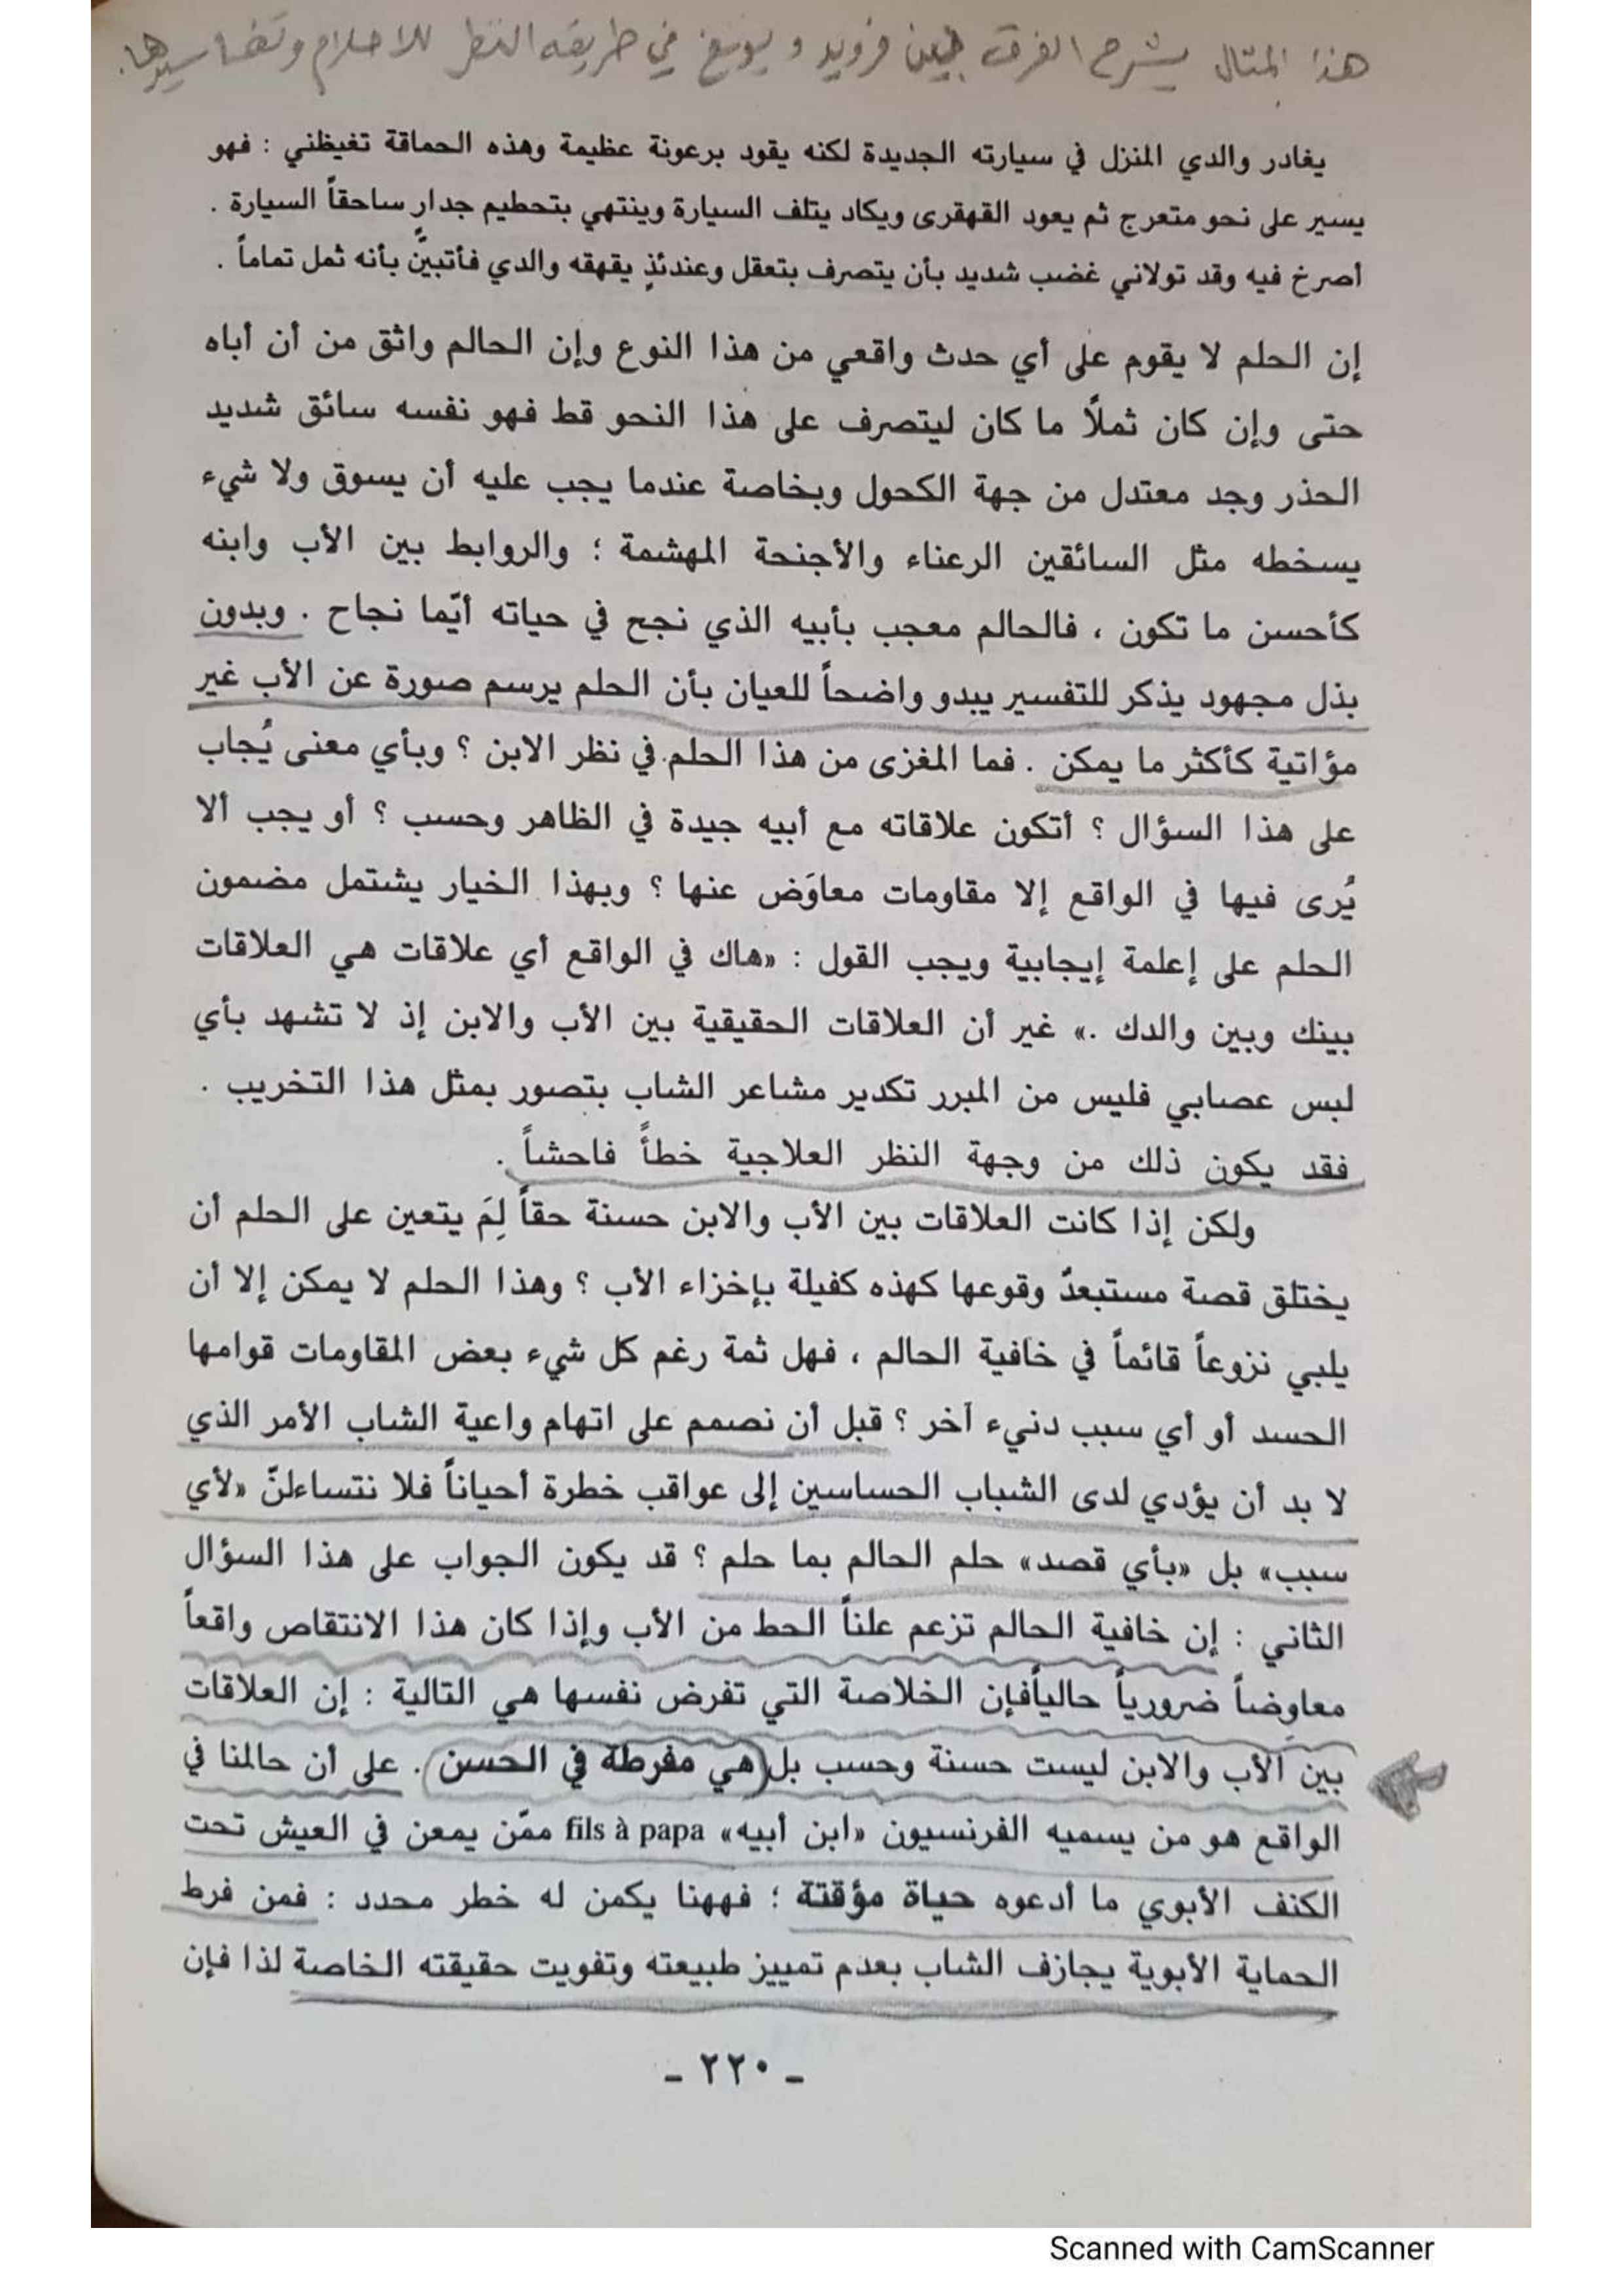 هذا المثال يشرح الفرق بين فرويد و يونغ في طريقه النظر للاحلام وتفاسيرها.
يغادر والدي المنزل في سيارته الجديدة لكنه يقود برعونة عظيمة وهذه الحماقة تغيظني : فهو
يسير على نحو متعرج ثم يعود القهقرى ويكاد يتلف السيارة وينتهي بتحطيم جدارٍ ساحقاً السيارة .
أصرخ فيه وقد تولاني غضب شديد بأن يتصرف بتعقل وعندئذٍ يقهقه والدي فأتبينَّ بأنه ثمل تماماً .
إن الحلم لا يقوم على أي حدث واقعي من هذا النوع وإن الحالم واثق من أن أباه
حتى وإن كان ثملاً ما كان ليتصرف على هذا النحو قط فهو نفسه سائق شديد
الحذر وجد معتدل من جهة الكحول وبخاصة عندما يجب عليه أن يسوق ولا شيء
يسخطه مثل السائقين الرعناء والأجنحة المهشمة ؛ والروابط بين الأب وابنه
كأحسن ما تكون ، فالحالم معجب بأبيه الذي نجح في حياته أيّما نجاح . وبدون
بذل مجهود يذكر للتفسير يبدو واضحاً للعيان بأن الحلم يرسم صورة عن الأب غير
مؤاتية كأكثر ما يمكن . فما المغزى من هذا الحلم في نظر الابن ؟ وبأي معنى يُجاب
على هذا السؤال ؟ أتكون علاقاته مع أبيه جيدة في الظاهر وحسب ؟ أو يجب ألا
يُرى فيها في الواقع إلا مقاومات معاوَض عنها ؟ وبهذا الخيار يشتمل مضمون
الحلم على إعلمة إيجابية ويجب القول : «هاك في الواقع أي علاقات هي العلاقات
بينك وبين والدك .» غير أن العلاقات الحقيقية بين الأب والابن إذ لا تشهد بأي
لبس عصابي فليس من المبرر تكدير مشاعر الشاب بتصور بمثل هذا التخريب .
فقد يكون ذلك من وجهة النظر العلاجية خطأً فاحشاً .
ولكن إذا كانت العلاقات بين الأب والابن حسنة حقاً لِمَ يتعين على الحلم أن
يختلق قصة مستبعدّ وقوعها كهذه كفيلة بإخزاء الأب ؟ وهذا الحلم لا يمكن إلا أن
يلبي نزوعاً قائماً في خافية الحالم ، فهل ثمة رغم كل شيء بعض المقاومات قوامها
الحسد أو أي سبب دنيء آخر ؟ قبل أن نصمم على اتهام واعية الشاب الأمر الذي
لا بد أن يؤدي لدى الشباب الحساسين إلى عواقب خطرة أحياناً فلا نتساءلنّ «لأي
سبب» بل «بأي قصد» حلم الحالم بما حلم ؟ قد يكون الجواب على هذا السؤال
الثاني : إن خافية الحالم تزعم علناً الحط من الأب وإذا كان هذا الانتقاص واقعاً
معاوضاً ضرورياً حالياًفإن الخلاصة التي تفرض نفسها هي التالية : إن العلاقات
بين الأب والابن ليست حسنة وحسب بل هي مفرطة في الحسن . على أن حالمنا في
الواقع هو من يسميه الفرنسيون «ابن أبيه» fils à papa ممّن يمعن في العيش تحت
الكنف الأبوي ما أدعوه حياة مؤقتة ؛ فههنا يكمن له خطر محدد : فمن فرط
الحماية الأبوية يجازف الشاب بعدم تمييز طبيعته وتفويت حقيقته الخاصة لذا فإن
- ٢٢٠ -
Scanned with CamScanner